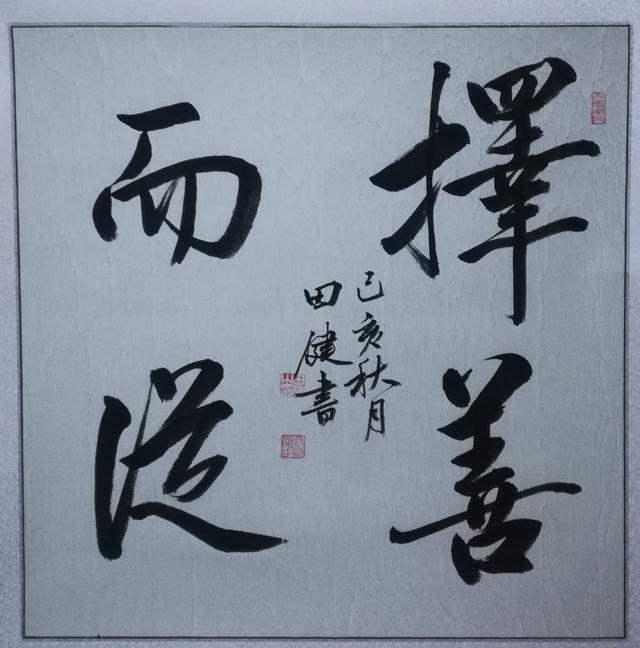 擇善
而從
己亥秋月
田健書